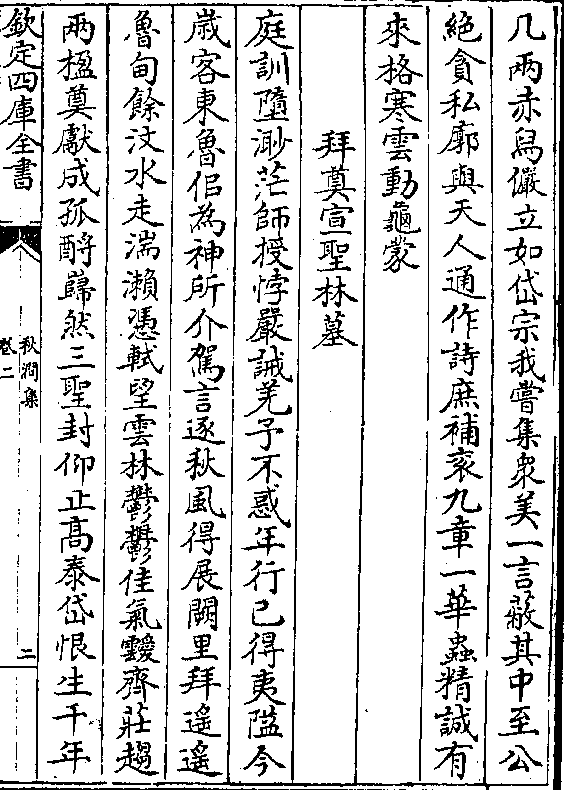 几兩赤舄儼立如岱宗我嘗集衆美一言蔽其中至公
絶貪私廓與天人通作詩庶補衮九章一華蟲精誠有
來格寒雲動龜蒙
拜奠宣聖林墓
庭訓墮渺茫師授悖嚴誡羌予不惑年行己得夷隘今
歳客東魯侣為神所介駕言逐秋風得展闕里拜遥遥
魯甸餘汶水走湍瀬憑軾望雲林鬱鬱佳氣靉齊莊趨
兩楹奠獻成孤酹巋然三聖封仰止髙泰岱恨生千年
欽定四庫全書
秋澗集
卷二
二